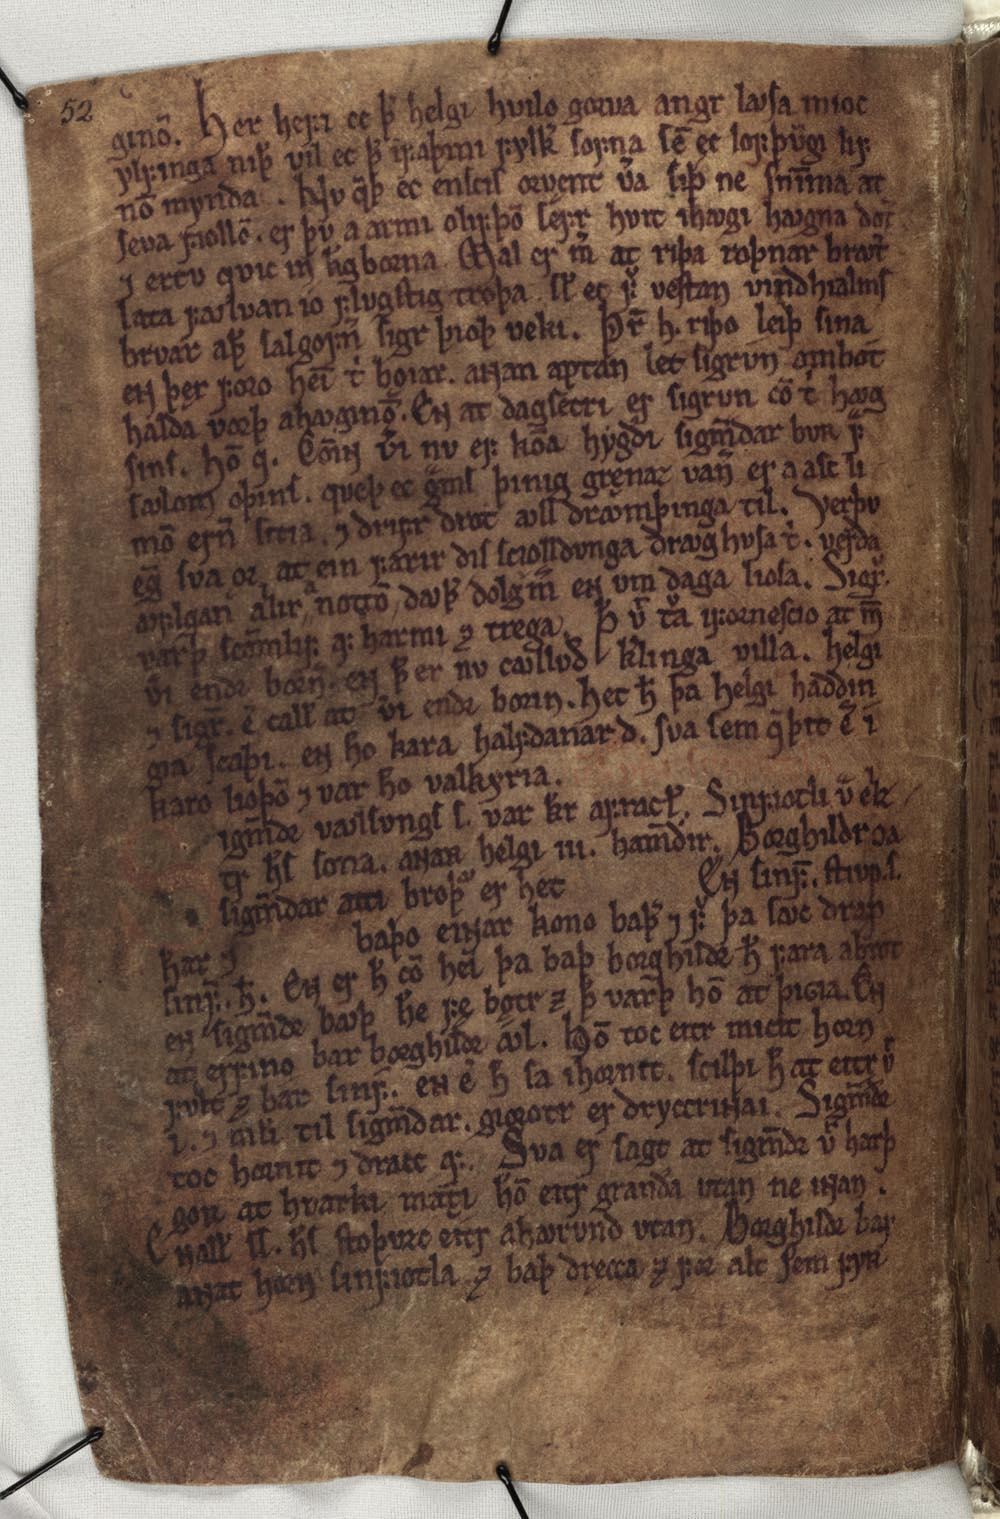 52
ginō. Her hefi ec þ̄ helgi hvilo gorva angr lꜹsa mioc
ylfinga niþ vil ec þ̄ ifaþmi fylk̄ sofna sē ec lofþūgi lif
nō mynda. Nv q̄þ ec enſcis orvent v̄a siþ ne ſnīma at
ſeva fiollō. er þv a armi olifþō sefr hvit ihꜹgi hꜹgna dot̄
⁊ ertv qvic in k̄gborna. Mal er m̄ at riþa roþnar brꜹt̄
lata fꜹlvan io flvgstig troþa. sl̄ ec f̄ veſtan vindhialms
brvar aþ̄ salgofn̄ sigr þioþ veki. Þr̄ h. riþo leiþ sina
en þęr foro hei t̄ bǫiar. anan aptan let sigrvn ambot
halda vorþ ahꜹginō. En at dagsetri er sigrvn cō t̄ hꜹg
sins. hō q. Comin v̄i nv ef koma hygdi sigm̄dar bvr f̄
sꜹlom oþins. qveþ ec ḡms þinig grenaz van̄ er a asc li
mō ern̄ sitia. ⁊ drifr drot ꜹll drꜹmþinga til. Verþv
eḡ sva ǫr at ein farir dis sciolldvnga drꜹghvsa t̄. verda
ꜹflgari allir a nottō dꜹþ̄ dolḡm̄ en vm daga liosa. Sigr̄.
varþ scamlif q: harmi ⁊ trega. Þ v̄ t̄a iforneſcio at m̄
v̄i endr born̄. en þ̄ er nv callvd k̄linga villa. helgi
⁊ sigr̄. ē call̄ at v̄i endr borin. het h̄ þa helgi haddin
gia scaþi. en h̄o kara halfdanar d. sva sem q̄þit ē i
karo lioþō ⁊ var h̄o valkyria.
igm̄dr vꜹlsvngs s. var k̄r afrac̄l. Sinfiotli v̄ elz
tr h̄s sona. anar helgi iii. ham̄dir. Borghildr va
sigm̄dar atti broþ̄ er het En sinf. stivp.s.
h̄ar ⁊ baþo einar kono baþ̄ ⁊ f̄ þa sꜹc drap
sinf. h̄. En er h̄ cō hei þa baþ borghildr h̄ fara abrot
en sigm̄dr bꜹþ h̄e fe bǫtr ⁊ þ̄ varþ hō at þigia. En
at erfino bar borghildr ꜹl. hō toc eitr mikit horn
fvlt ⁊ bar sinf. en ē h̄ sa ihornit. scilþi h̄ at eitr v̄
i. ⁊ mli til sigm̄dar. giorotr er dryccrinn ai. Sigm̄dr
toc hornit ⁊ dracc q:. Sva er sagt at sigm̄dr v̄ harþ
gorr at hvarki matti hō eitr granda vtan ne inan.
En all̄ sl. h̄s stoþvzc eitr ahꜹrvnd vtan. Borghildr bar
anat horn sinfiotla ⁊ baþ drecca ⁊ for alt sem fyr